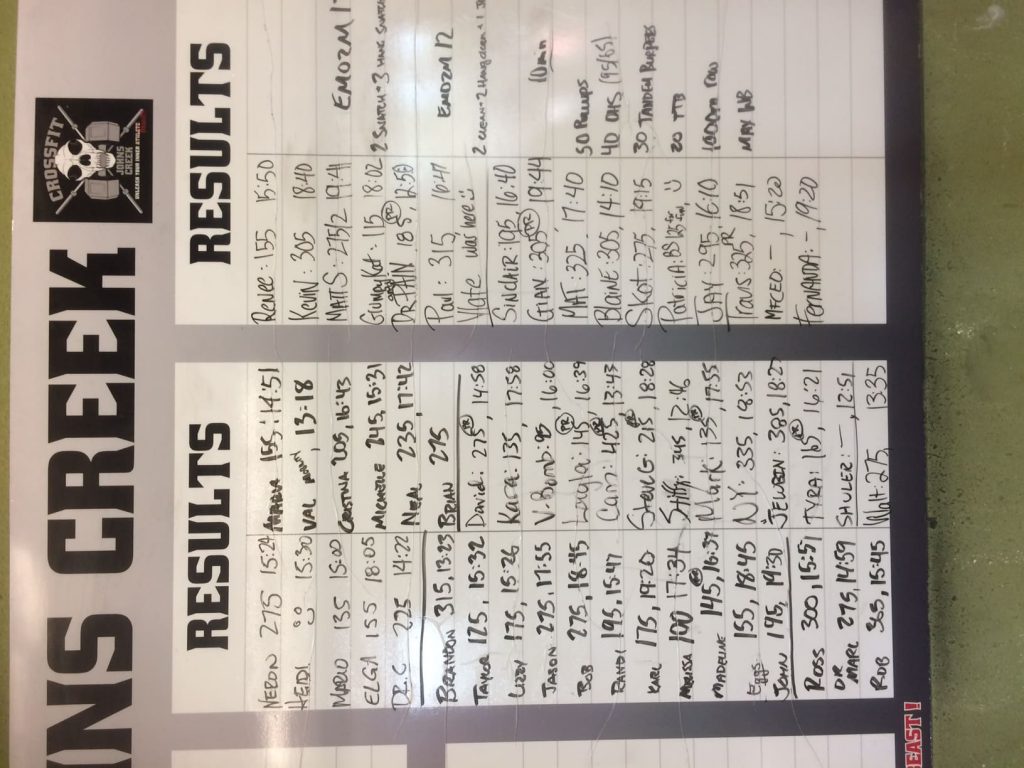 NS CREEK
CROSSFIT
JOHNS
CREEK
RESULTS
NERON 275 15:24
HEIDI 15:30
MARIO 135 15:00
ELGA 155 18:05
DR.C 225 14:22
BRANDON 315, 13:23
TAYLOR 125, 15:32
LIZZY 175, 15:26
JASON 275, 17:55
BOB 275, 18:45
RANDI 195, 15:47
KARL 175, 19:20
MELISSA 100 17:34
MADELINE 145 PR, 16:37
Eggs 155, 18:45
JOHN 195, 19:30
ROSS 300, 15:57
DR MARL 275, 14:59
ROB 365, 15:45
155, 14:51
VAL, 13:18
CRISTINA 205, 16:43
MICHAELE 245, 15:31
NEAL 235, 17:42
BRIAN 275
David: 275 PR, 14:58
Kara: 135, 17:58
V-Bomb: 95, 16:00
Layla: 145 PR, 16:39
Cam: 425 PR, 13:43
Steve G: 215 PR, 18:28
345, 12:46
Mark: 135 PR, 17:55
NY: 335, 18:53
JEWBEN: 385, 18:27
TYRA: 165 PR, 16:21
SHULER: —, 12:51
Walt: 275, 13:35
RESULTS
Renee: 155 15:50
Kevin: 305 18:40
Matt S: 275/2 19:41
Gumby Kat: 115 18:02
Dr. PAIN 185 PR 12:58
Paul: 315, 16:47
was here :)
SINCLAIR: 105, 16:40
GIAN: 305 PR, 19:44
MAT: 325, 17:40
BLAINE: 305, 14:10
Skot: 275, 19:15
Patricia: BS
JAY: 295, 16:10
Travis: 325 PR, 18:51
MACEO: —, 15:20
FERNANDA: —, 19:20
EMO2M
EMO2M 12
10 min
50 Pullups
40 OHS (95/65)
30 TANDEM BURPEES
20 TTB
1000m row
MAY WB
EAST!